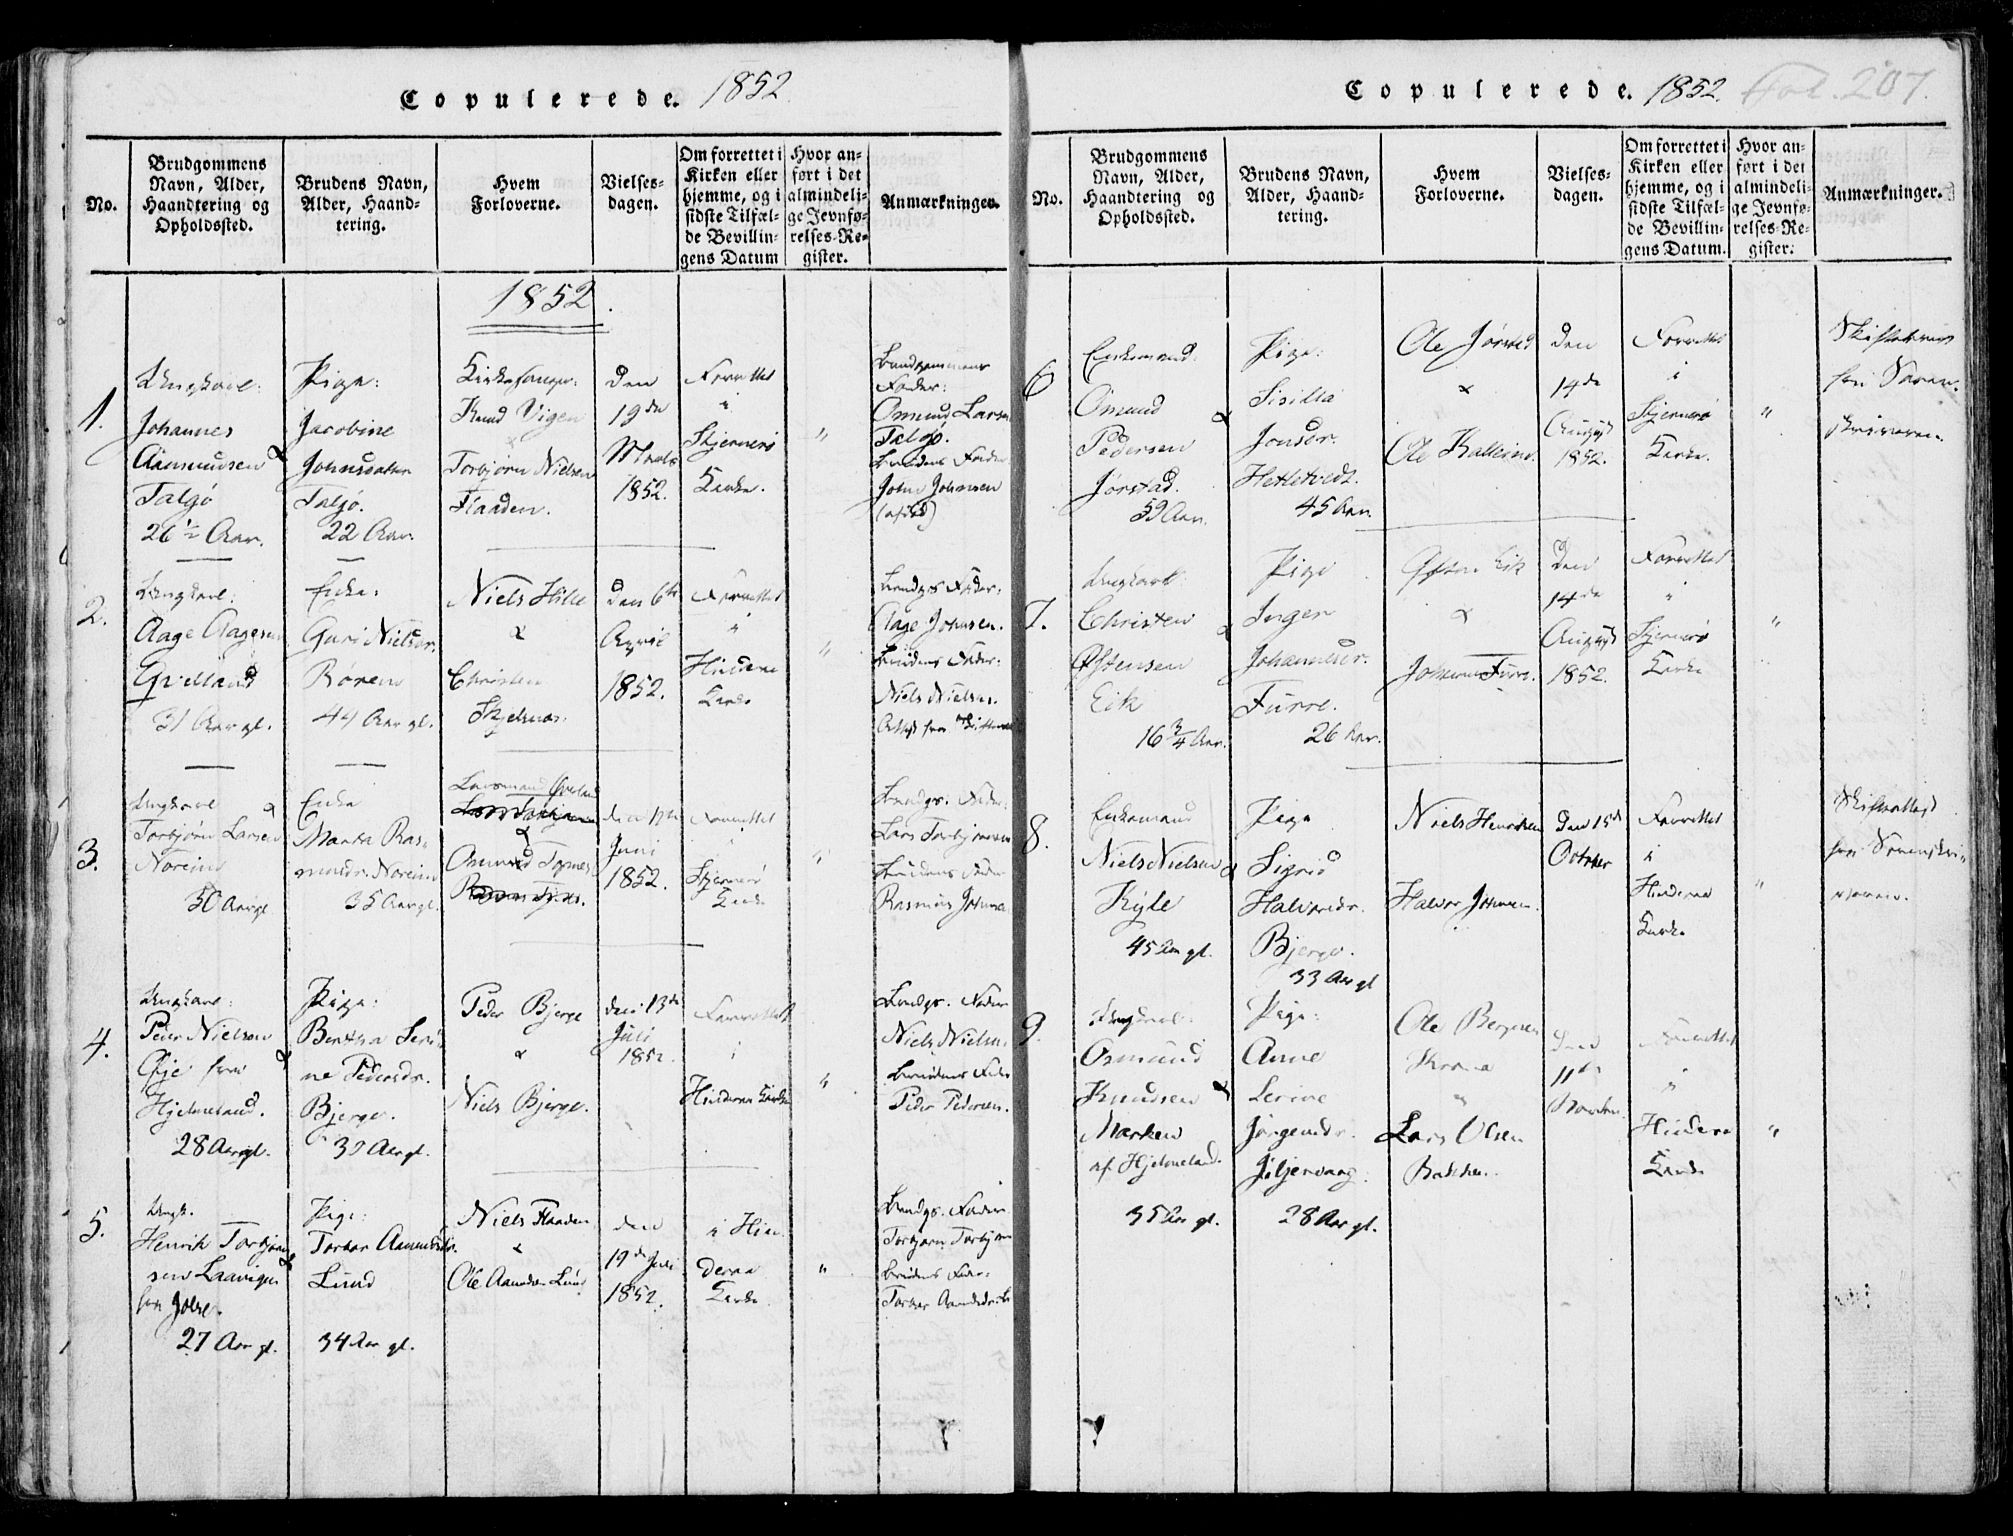 Copulerede. 1852
No.
Brudgommens Navn, Alder, Haandtering og Opholdssted.
Brudens Navn, Alder, Haandtering.
Hvem Forloverne.
Vielsesdagen.
Om forrettet i Kirken eller hjemme, og i sidste Tilfælde Bevillingens Datum
Hvor anført i det almindelige Jevnførelses-Register.
Anmærkninger.
1852.
1.
Ungkarl:
Johannes
Aamundsen
Talgø
26 1/2 Aar.
Pige:
Jacobine
Johnsdatter
Talgø.
22 Aar.
Kirkesanger:
Knud Vigen
Torbjørn Nielsen
Flaaden.
den
19de
Marts
1852.
Forrettet
i
Skjernerø
Kirke.
"
Brudgommens
Fader:
Omund Larsen
Talgø.
Brudens Fader
John Johnsen
2.
Ungkarl:
Aage Aagesen
Qvilland
31 Aar gl.
Enke:
Guri Nielsdr.
Røren
44 Aar gl.
Niels Hille
&
Christen
Skjelnæs.
den 6te
April
1852.
Forrettet
i
Hinderaa
Kirke
"
Brudgs Fader:
Aage Johnsen.
Brudens Fader:
Niels Nielsen.
3.
Ungkarl &
Torbjørn Larsen
Noreim
30 Aar gl
Enke
Marta Ras-
musdr. Noreim
35 Aar gl.
&
Omund Tognes
Juni
1852.
Forrettet
i
Skjernerø
Kirke
"
Brudgs. Fader:
Lars Torbjørnsen
Brudens Fader
Rasmus Johnsen
4.
Ungkarl:
Peder Nielsen
Øje fra &
Hjelmeland.
28 Aar gl.
Pige:
Bertha Seri-
ne Pedersdr.
Bjerge.
30 Aar gl.
Peder Bjerge
&
Niels Bjerge.
den 13de
Juli
1852.
Forrettet
i
Hinderaa Kirke
"
Brudgs. Fader
Niels Nielsen.
Brudens Fader
Peder Pedersen.
5.
Ungk.
Henrik Torbjørn-
sen Laavigen
fra Jelse.
27 Aar gl.
Pige:
Torbor Aamundsdr.
Lund
34 Aar gl.
Niels Flaaden
&
Ole Aamundsen Lund
den
19de Juli
1852.
i Hin-
deraa
Kirke
"
Brudgs. Fader
Torbjørn Torbjørnsen
Brudens Fader:
Copulerede. 1852. Fol. 207.
No.
Brudgommens Navn, Alder, Haandtering og Opholdssted.
Brudens Navn, Alder, Haandtering.
Hvem Forloverne.
Vielsesdagen.
Om forrettet i Kirken eller hjemme, og i sidste Tilfælde Bevillingens Datum.
Hvor anført i det almindelige Jevnførelses-Register.
Anmærkninger.
6
Enkemand.
Omund
Pedersen
Jørstad.
59 Aar.
Pige:
Sisilia
Jonsdr.
Hetletvedt.
45 Aar.
Ole Jørstad
&
den
14de
August
1852.
Forrettet
i
Skjernerø
Kirke.
"
fra Soren-
skriveren.
7.
Ungkarl:
Christen &
Østensen
Eik
16 3/4 Aar.
Pige
Inger
Johannesdr.
Furre.
26 Aar.
Østen Eik
&
Johannes Furre.
den
14de
August
1852.
Forrettet
i
Skjernerø
Kirke
"
8.
Enkemand
Niels Nielsen &
Kyle
45 Aar gl.
Pige
Sigrid
Halvorsdr.
Bjerge.
33 Aar gl
Niels Henriksen
Halvor Johnsen.
den 15de
October
Forrettet
i
Hinderaa
Kirke
"
Skifteattest
fra Sorenskri-
veren.
9.
Ungkarl:
Osmund
Knudsen &
Marken
af Hjelmeland.
35 Aar gl.
Pige:
Anne
Serine
Jørgensdr.
Jiljervaag.
28 Aar gl.
Ole Bergesen
"
Lars Olsen
Bakken.
den
11te
Forrettet
i
Hinderaa
Kirke
"